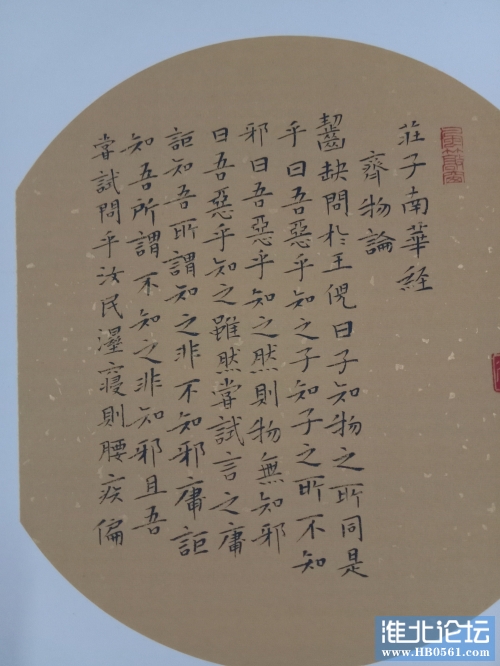 莊子南華経
齊物論
齧缺問於王倪曰子知物之所同是
乎曰吾惡乎知之子知子之所不知
邪曰吾惡乎知之然則物無知邪
曰吾惡乎知之雖然甞試言之庸
詎知吾所謂知之非不知邪庸詎
知吾所謂不知之非知邪且吾
甞試問乎汝民溼寢則腰疾偏
淮北论坛
www.HB0561.com